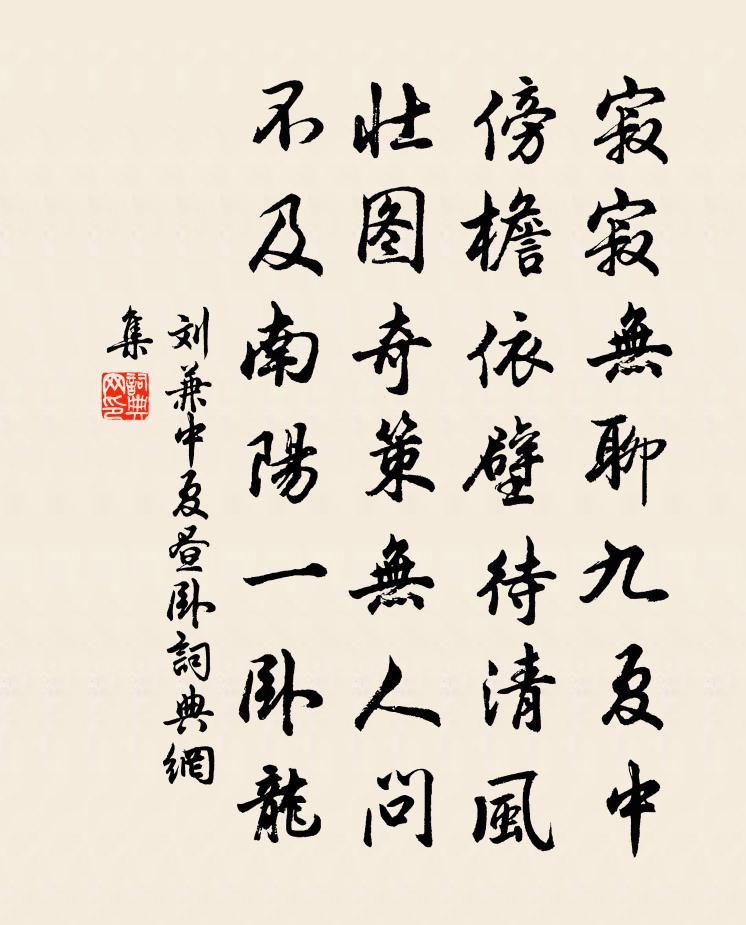 寂寂無聊九夏中
傍檐依壁待清風
壮图奇策無人問
不及南陽一卧龍
刘兼中夏昼卧詞典網
集
詞典
网印